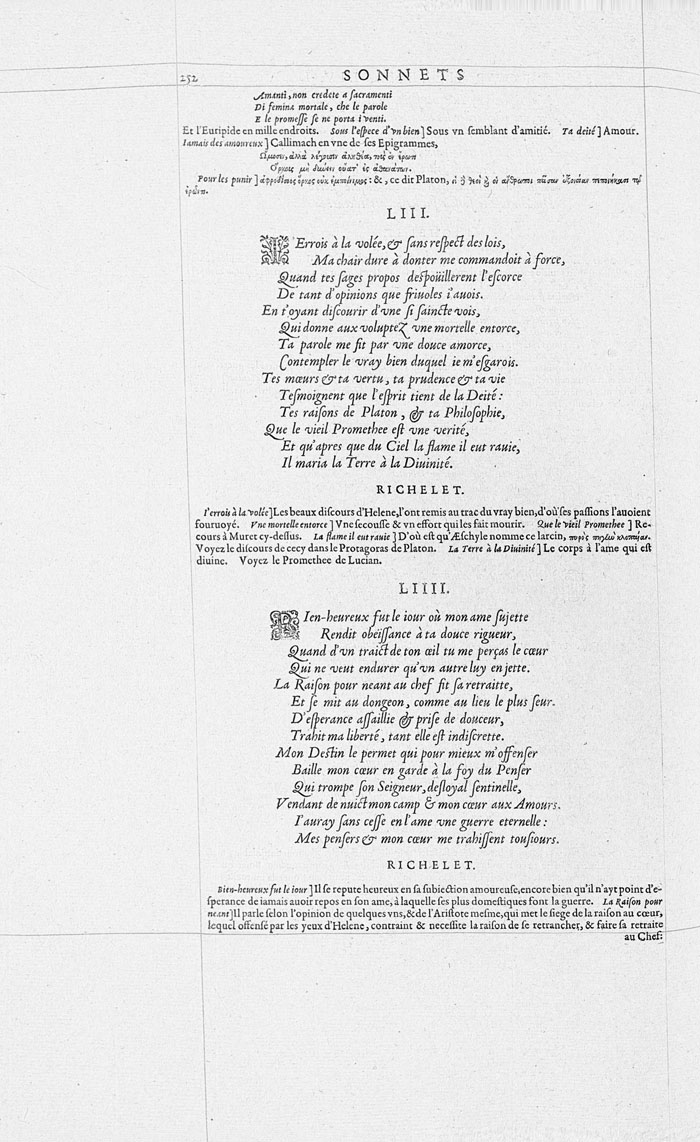 252 SONNETS
Amanti, non credete a ſacramenti
Di femina mortale, che le parole
E le promeſſe ſe ne porta i venti.
Et l'Euripide en mille endroits. Sous l'eſpece d'vn bien] Sous vn ſemblant d'amitié. Ta deité] Amour.
Iamais des amoureux] Callimach en vne de ſes Epigrammes,
Ὤμοσεν, ἀλλὰ λέγουσιν ἀληθέα, τοὺς ἐν ἔρωτι
Ὅρκους μὴ δύνειν οὔατ' ἐς ἀθανάτων.
Pour les punir] ἀφροδίσιος ὅρκος οὐκ ἐμποίνιμος: &, ce dit Platon,
LIII.
I'Errois à la volée, & ſans reſpect des lois,
Ma chair dure à donter me commandoit à force,
Quand tes ſages propos deſpoüillerent l'eſcorce
De tant d'opinions que friuoles i'auois.
En t'oyant diſcourir d'vne ſi ſaincte vois,
Qui donne aux voluptez vne mortelle entorce,
Ta parole me fit par vne douce amorce,
Contempler le vray bien duquel ie m'eſgarois.
Tes mœurs & ta vertu, ta prudence & ta vie
Teſmoignent que l'eſprit tient de la Deité:
Tes raiſons de Platon, & ta Philoſophie,
Que le vieil Promethee eſt vne verité,
Et qu'apres que du Ciel la flame il eut rauie,
Il maria la Terre à la Diuinité.
RICHELET.
I'errois à la volée] Les beaux diſcours d'Helene, l'ont remis au trac du vray bien, d'où ſes paſſions l'auoient
fouruoyé. Vne mortelle entorce] Vne ſecouſſe & vn effort qui les fait mourir. Que le vieil Promethee] Re-
cours à Muret cy-deſſus. La flame il eut rauie] D'où eſt qu'Æſchyle nomme ce larcin, πυρὸς πηγὴν κλοπαίαν.
Voyez le diſcours de cecy dans le Protagoras de Platon. La Terre à la Diuinité] Le corps à l'ame qui eſt
diuine. Voyez le Promethee de Lucian.
LIIII.
BIen-heureux fut le iour où mon ame ſujette
Rendit obeïſſance à ta douce rigueur,
Quand d'vn traict de ton œil tu me perças le cœur
Qui ne veut endurer qu'vn autre luy en jette.
La Raiſon pour neant au chef fit ſa retraitte,
Et ſe mit au dongeon, comme au lieu le plus ſeur.
D'eſperance aſſaillie & priſe de douceur,
Trahit ma liberté, tant elle eſt indiſcrette.
Mon Deſtin le permet qui pour mieux m'offenſer
Baille mon cœur en garde à la foy du Penſer
Qui trompe ſon Seigneur, deſloyal ſentinelle,
Vendant de nuict mon camp & mon cœur aux Amours.
I'auray ſans ceſſe en l'ame vne guerre eternelle:
Mes penſers & mon cœur me trahiſſent touſiours.
RICHELET.
Bien-heureux fut le iour] Il ſe repute heureux en ſa ſubiection amoureuſe, encore bien qu'il n'ayt point d'e-
ſperance de iamais auoir repos en ſon ame, à laquelle ſes plus domeſtiques font la guerre. La Raiſon pour
neant] Il parle ſelon l'opinion de quelques vns, & de l'Ariſtote meſme, qui met le ſiege de la raiſon au cœur,
lequel offenſé par les yeux d'Helene, contraint & neceſſite la raiſon de ſe retrancher, & faire ſa retraite
au Chef: